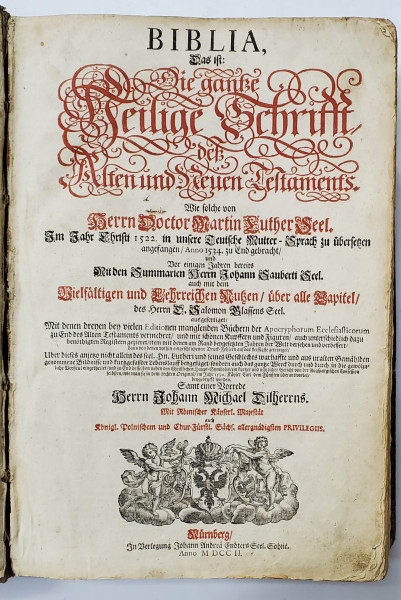 BIBLIA,
Das ist:
Die gantze
Heilige Schrifft/
deß
Alten und Neuen Testaments.
Wie solche von
Herrn Doctor Martin Luther Seel.
Im Jahr Christi 1522. in unsere Teutsche Mutter-Sprach zu übersetzen
angefangen/ Anno 1534. zu End gebracht/
und
Vor einigen Jahren bereits
Mit den Summarien Herrn Johann Sauberti Seel.
auch mit dem
Vielfältigen und Lehrreichen Nutzen/ über alle Capitel/
des Herrn D. Salomon Glassens Seel.
ausgefertiget/
Mit denen dreyen bey vielen Editionen manglenden Büchern der Apocryphorum Ecclesasticorum
zu End des Alten Testaments vermehret/ und mit schönen Kupffern und Figuren/ auch unterschiedlich dazu
benöthigten Registern gezieret
Uber dieses anjetzo nicht allein des seel. Hn. Lutheri und seines Geschlechts warhaffte und aus uralten Gemählden
genommene Bildnüsse
beygedruckt worden.
Samt einer Vorrede
Herrn Johann Michael Dilherrns.
Mit Römischer Käyserl. Majestät
auch
Königl. Polnischem und Chur-Fürstl. Sächs. allergnädigsten PRIVILEGIIS.
Nürnberg/
In Verlegung Johann Andreä Endters Seel. Söhne.
Anno M DCC II.